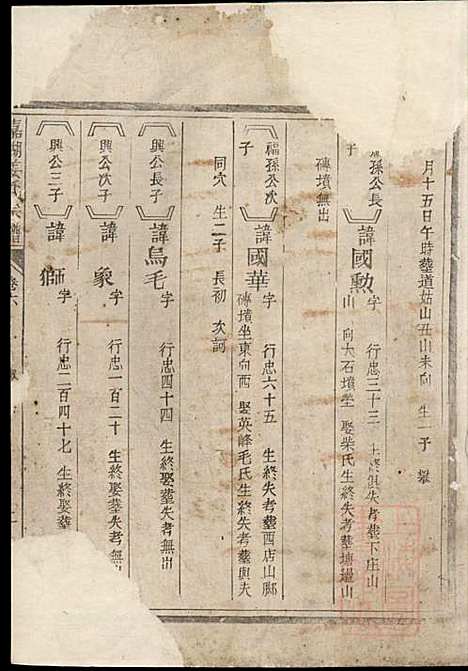 月十五日午時塟道姑山丑山未向 生一子 耀
福孫公長子
諱國勲
字 行忠三十三 生終俱失考塟下庄山
山 向大石墳塋 娶柴氏生終失考塟塘塭山
磚墳無出
福孫公次子
諱國華
字 行忠六十五 生終失考塟西店山脚
磚墳坐東向西 娶英峰毛氏生終失考塟與夫
同穴 生二子 長初 次訶
興公長子
諱烏毛
字 行忠四十四 生終娶塟失考無出
興公次子
諱象
字 行忠一百二十 生終娶塟失考無出
興公三子
諱獅
字 行忠二百四十七 生終娶塟
嘉湖姜氏宗譜
卷六